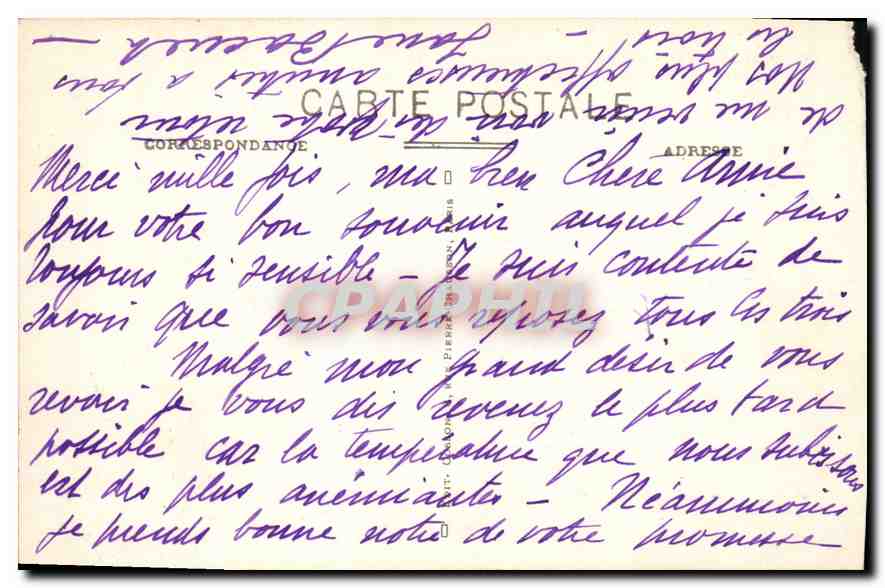 CARTE POSTALE
CORRESPONDANCE
ADRESSE
Merci mille fois, ma bien Chère Amie
pour votre bon souvenir auquel je suis
toujours si sensible - Je suis contente de
savoir que vous vous reposez tous les trois
Malgré mon grand désir de vous
revoir je vous dis revenez le plus tard
possible car la température que nous subissons
est des plus anémiantes - Néanmoins
je prends bonne note de votre promesse
de me venir voir
Nos plus affectueuses amitiés à vous
les trois -
CPAPHIL
RUE PIERRE PARIS